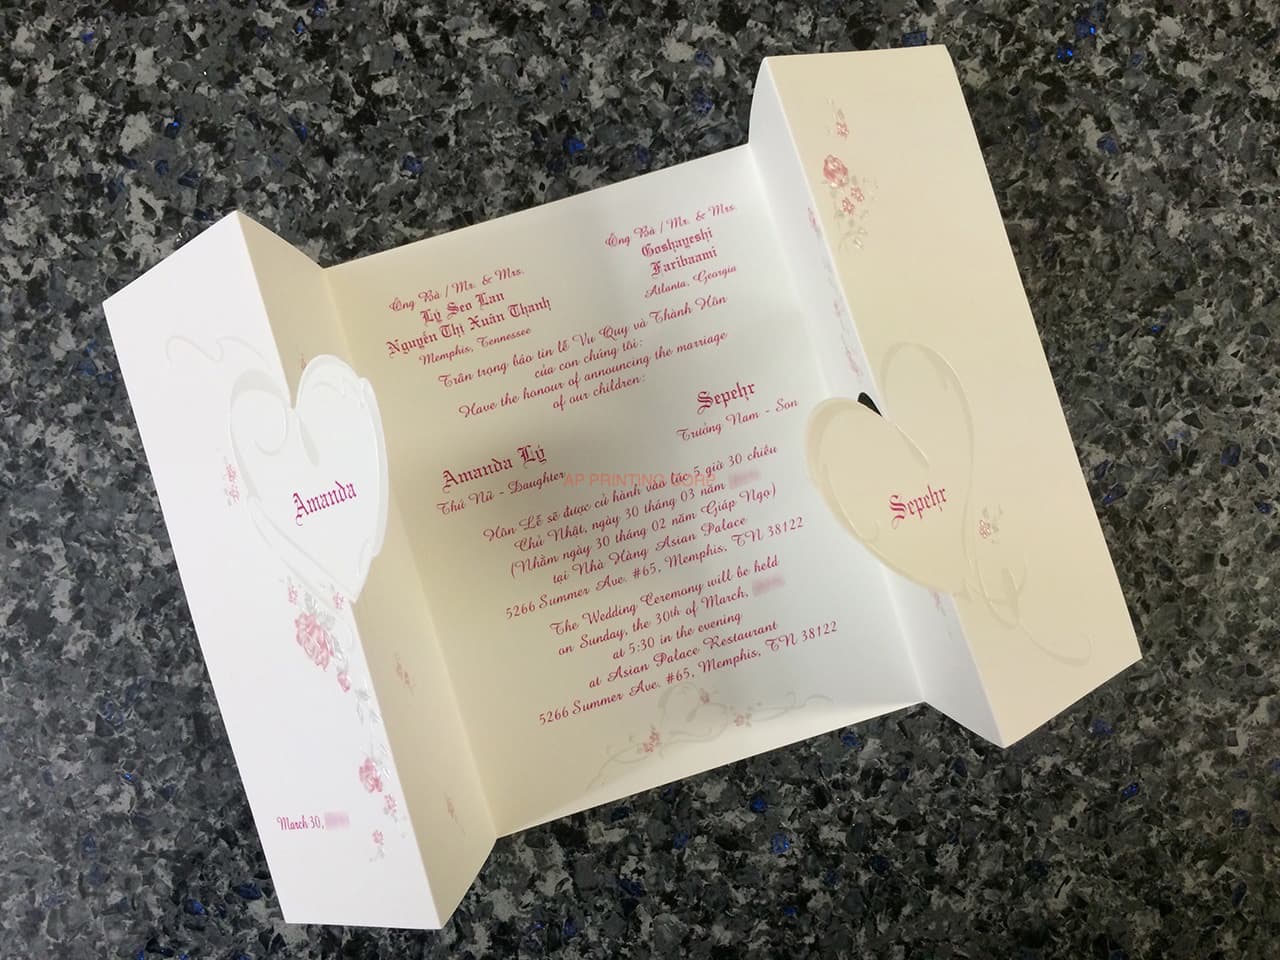 Ông Bà / Mr. & Mrs.
Lý Seo Lan
Nguyễn Thị Xuân Thanh
Memphis, Tennessee
Ông Bà / Mr. & Mrs.
Goshayeshi
Faribaami
Atlanta, Georgia
Trân trọng báo tin lễ Vu Quy và Thành Hôn
của con chúng tôi:
Have the honour of announcing the marriage
of our children:
Amanda Lý
Thứ Nữ - Daughter
Sepehr
Trưởng Nam - Son
Hôn Lễ sẽ được cử hành vào lúc 5 giờ 30 chiều
Chủ Nhật, ngày 30 tháng 03 năm
(Nhằm ngày 30 tháng 02 năm Giáp Ngọ)
tại Nhà Hàng Asian Palace
5266 Summer Ave. #65, Memphis, TN 38122
The Wedding Ceremony will be held
on Sunday, the 30th of March,
at 5:30 in the evening
at Asian Palace Restaurant
5266 Summer Ave. #65, Memphis, TN 38122
Amanda
March 30,
Sepehr
AP PRINTING CORP